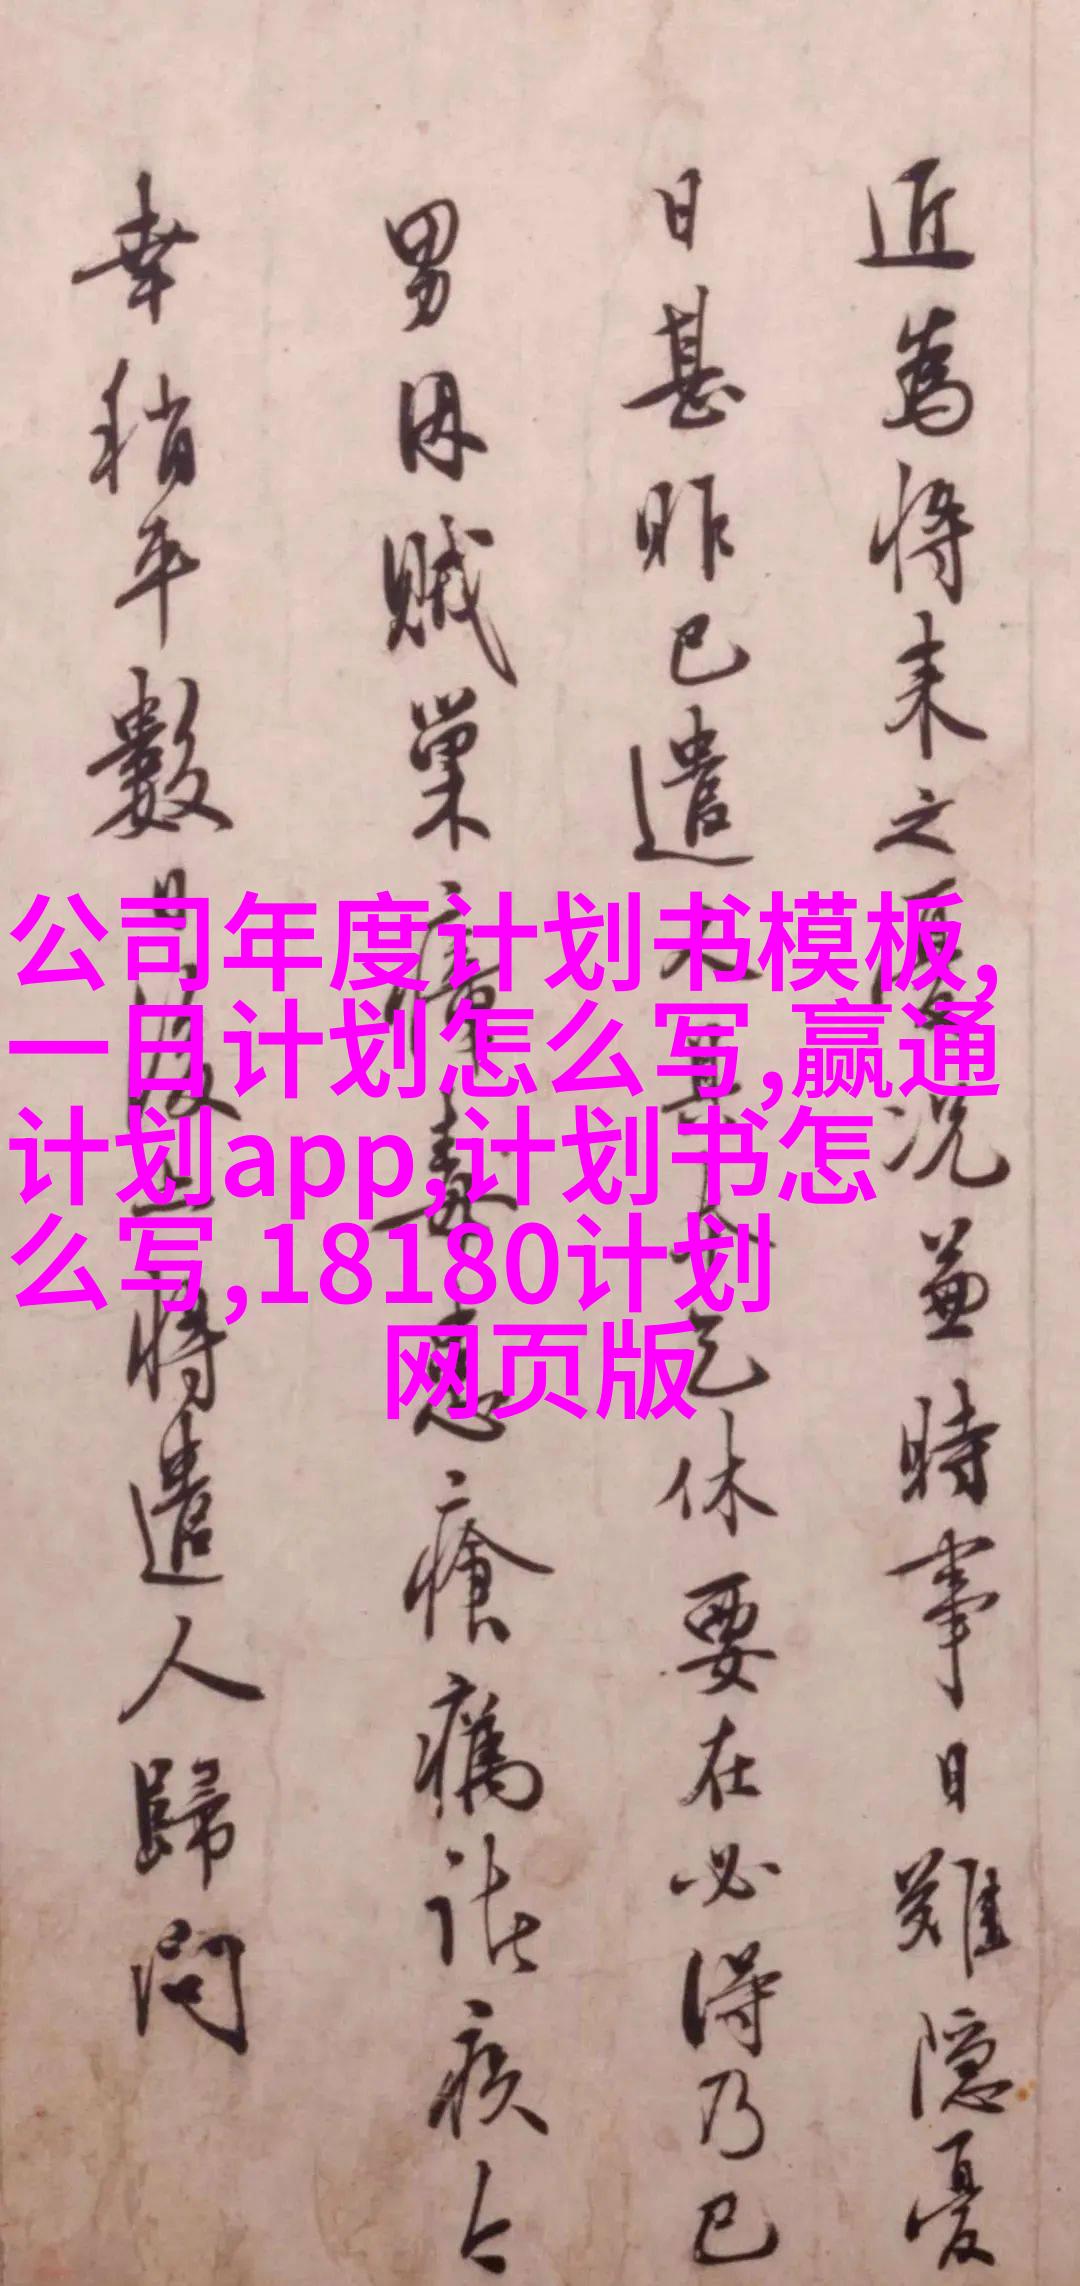 近為將來之况兼時事日難隱憂
日甚昨已遣乞休要在必得乃已
男因賊巢瘴毒患瘡癘諸疾今
幸稍平數日後將遣人歸問
公司年度计划书模板,
一日计划怎么写,赢通
计划app,计划书怎
么写,18180计划
网页版